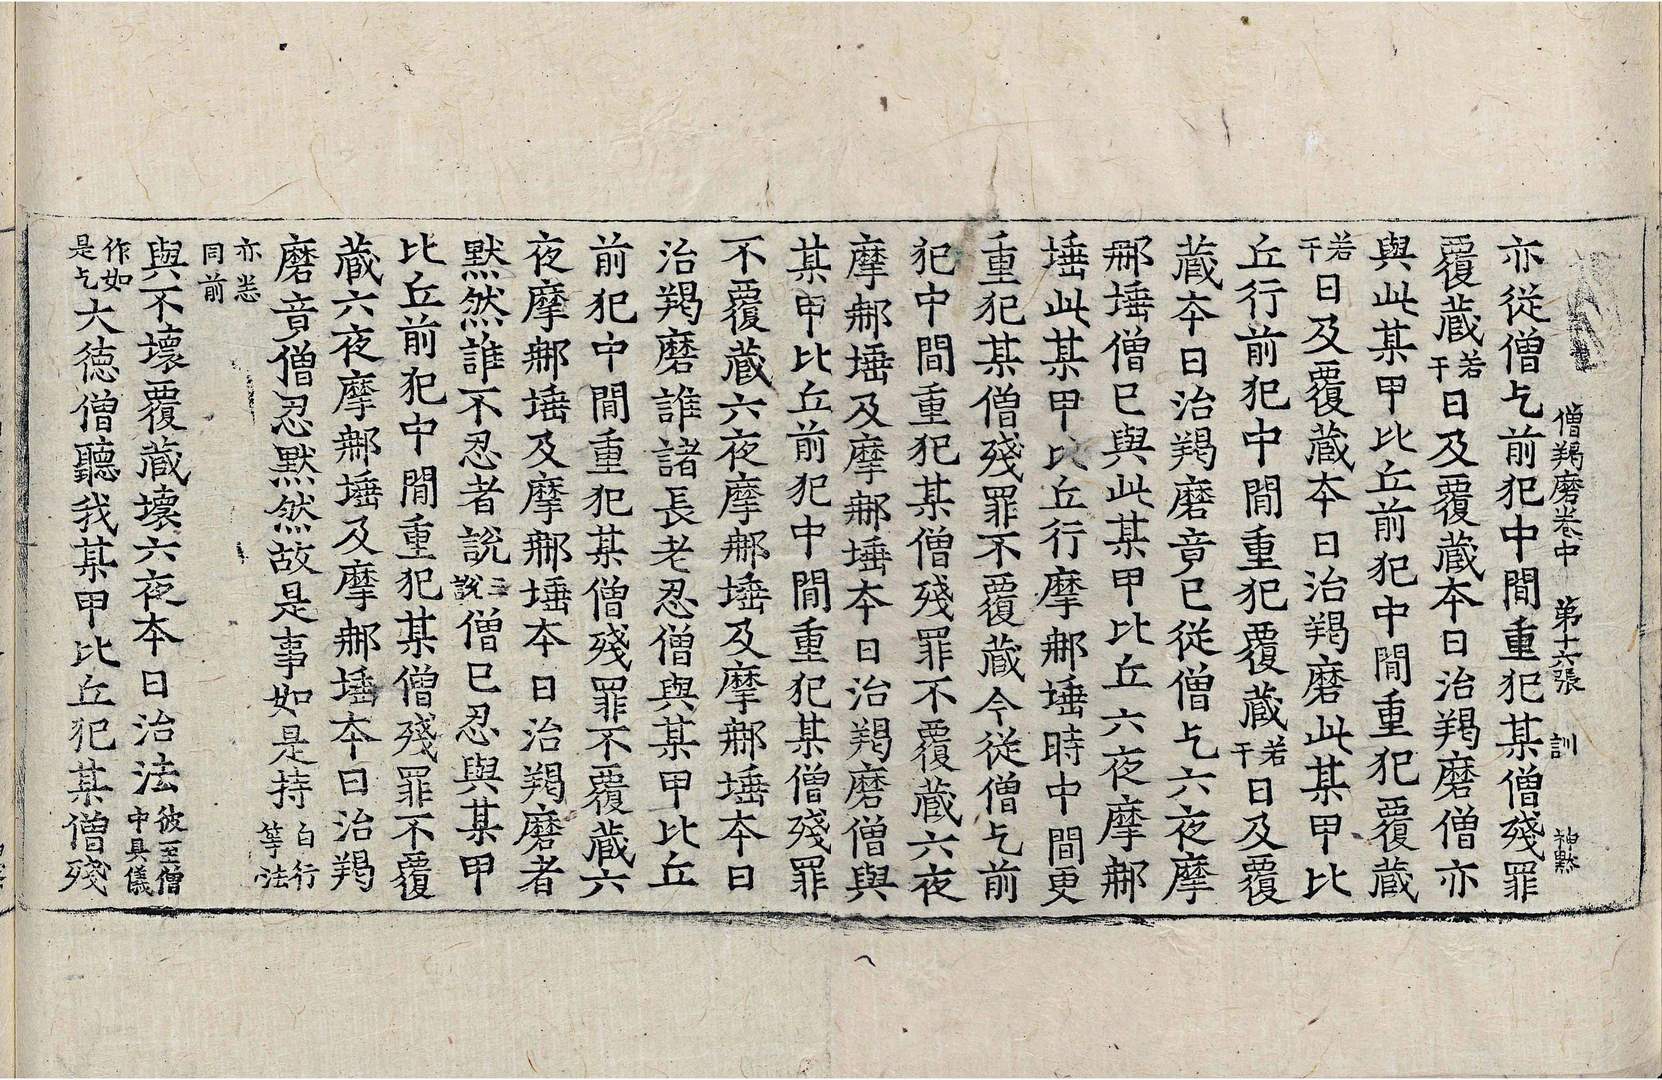 僧羯磨卷中 第十六張 訓 神黙
亦從僧乞前犯中間重犯某僧殘罪
覆藏若干日及覆藏本日治羯磨僧亦
與此某甲比丘前犯中間重犯覆藏
若干日及覆藏本日治羯磨此某甲比
丘行前犯中間重犯覆藏若干日及覆
藏本日治羯磨竟已從僧乞六夜摩
那埵僧已與此某甲比丘六夜摩那
埵此某甲比丘行摩那埵時中間更
重犯某僧殘罪不覆藏今從僧乞前
犯中間重犯某僧殘罪不覆藏六夜
摩那埵及摩那埵本日治羯磨僧與
某甲比丘前犯中間重犯某僧殘罪
不覆藏六夜摩那埵及摩那埵本日
治羯磨誰諸長老忍僧與某甲比丘
前犯中間重犯某僧殘罪不覆藏六
夜摩那埵及摩那埵本日治羯磨者
默然誰不忍者說三說僧已忍與某甲
比丘前犯中間重犯某僧殘罪不覆
藏六夜摩那埵及摩那埵本日治羯
磨竟僧忍默然故是事如是持自行等法
亦悉同前
與不壞覆藏壞六夜本日治法彼至僧中具儀
作如是乞大德僧聽我某甲比丘犯某僧殘